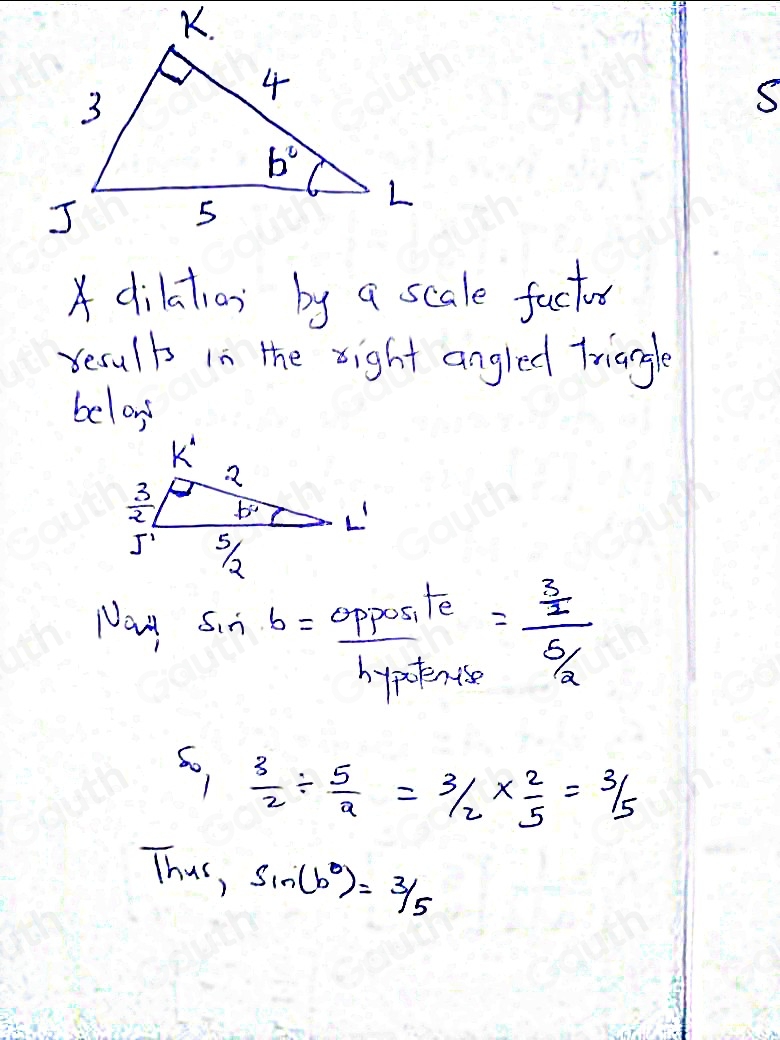 K.
3
4
b°
J
5
L
S
A dilation by a scale factor
results in the right angled triangle
below
K'
3/2
2
b°
J'
5/2
L'
Now, sin b = opposite/hypotenuse = 3/2 / 5/2
So, 3/2 ÷ 5/2 = 3/2 × 2/5 = 3/5
Thus, sin(b°) = 3/5
Gauth